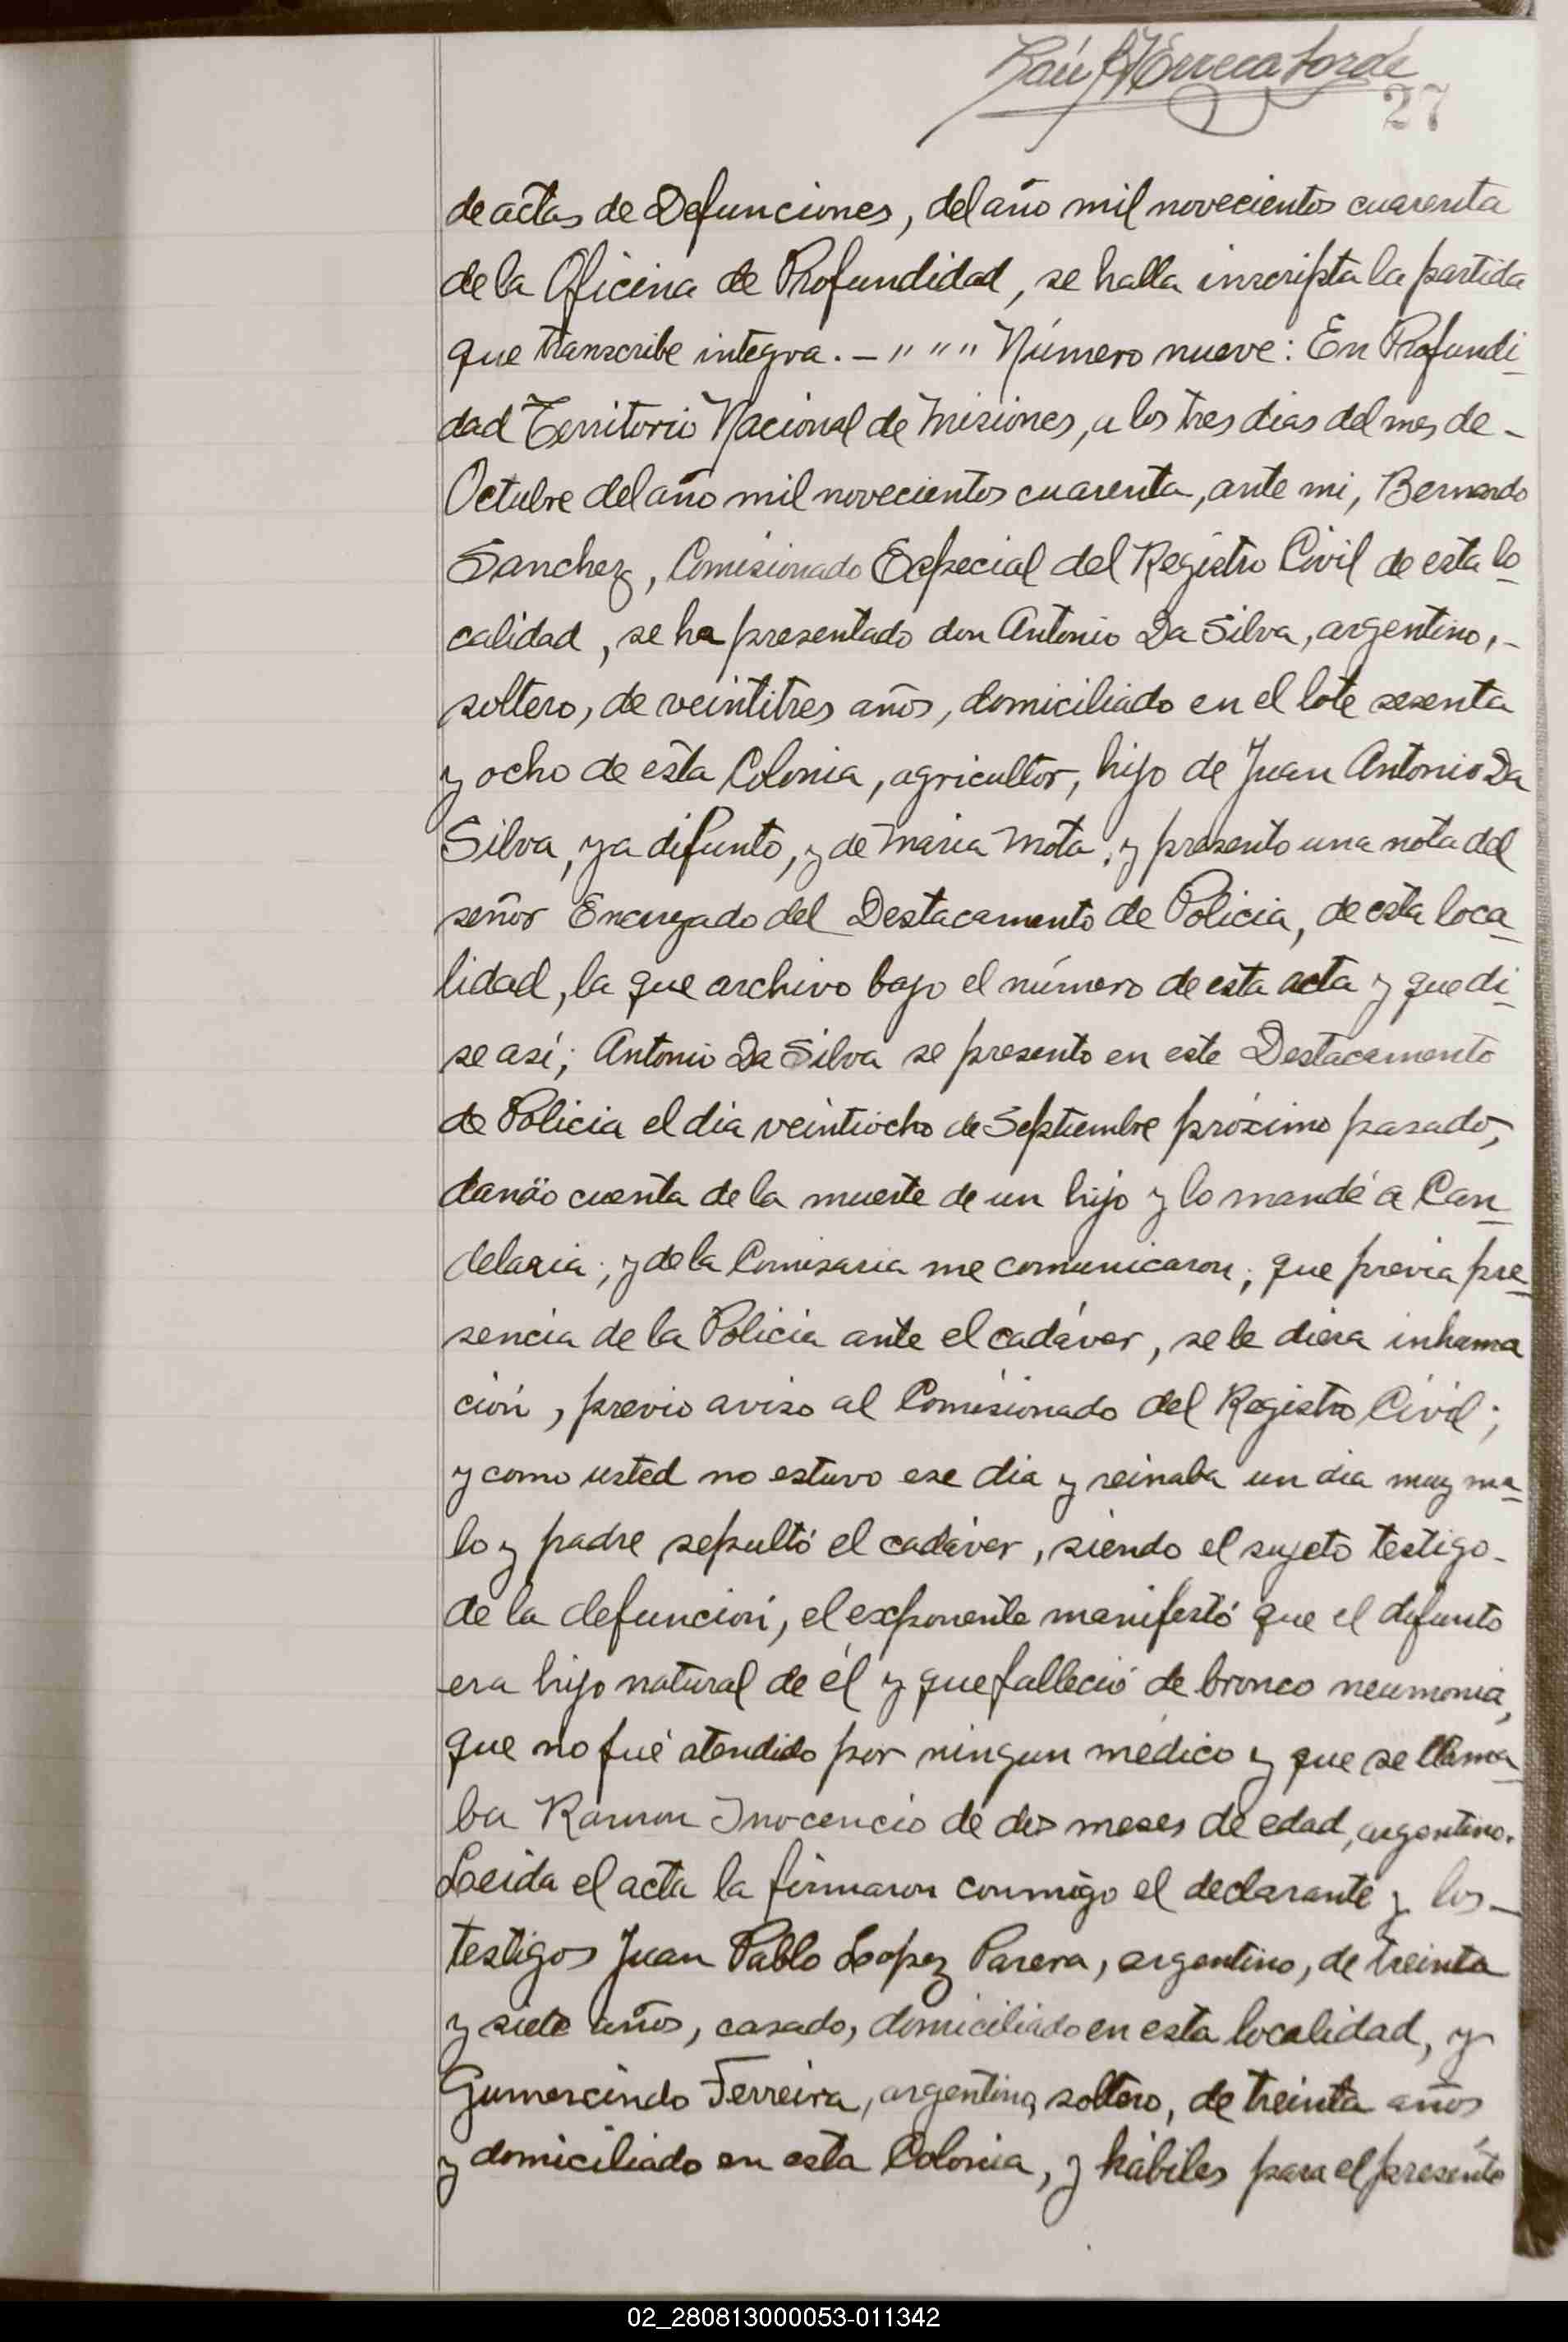 27
de actas de Defunciones, del año mil novecientos cuarenta
de la Oficina de Profundidad, se halla inscripta la partida
que transcribe integra. — " " " Número nueve: En Profundi-
dad Territorio Nacional de Misiones, a los tres dias del mes de -
Octubre del año mil novecientos cuarenta, ante mi, Bernardo
Sanchez, Comisionado Especial del Registro Civil de esta lo-
calidad, se ha presentado don Antonio Da Silva, argentino, -
soltero, de veintitres años, domiciliado en el lote sesenta
y ocho de esta Colonia, agricultor, hijo de Juan Antonio Da
Silva, ya difunto, y de Maria Mota, y presento una nota del
señor Encargado del Destacamento de Policia, de esta loca-
lidad, la que archivo bajo el número de esta acta y que di-
se así; Antonio Da Silva se presento en este Destacamento
de Policia el dia veintiocho de Septiembre próximo pasado,
dando cuenta de la muerte de un hijo y lo mandé a Can-
delaria; y de la Comisaria me comunicaron; que previa pre-
sencia de la Policia ante el cadáver, se le diera inhuma
ción, previo aviso al Comisionado del Registro Civil;
y como usted no estuvo ese dia y reinaba un dia muy ma-
lo y padre sepultó el cadáver, siendo el sujeto testigo -
de la defunción, el exponente manifestó que el difunto
era hijo natural de él y que falleció de bronco neumonia,
que no fué atendido por ningun médico y que se llama-
ba Ramon Inocencio de dos meses de edad, argentino.
Leida el acta la firmaron conmigo el declarante y los -
testigos Juan Pablo Lopez Parera, argentino, de treinta
y siete años, casado, domiciliado en esta localidad, y
Gumercindo Ferreira, argentino, soltero, de treinta años
y domiciliado en esta Colonia, y hábiles para el presente
02_280813000053-011342